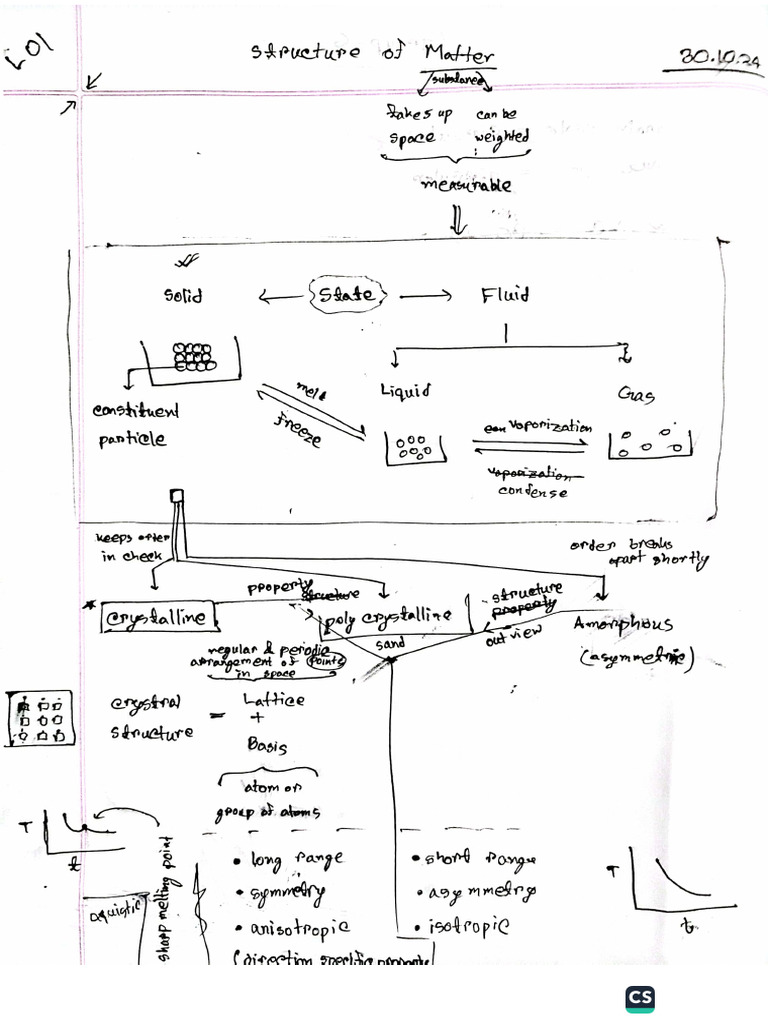 L01
Structure of Matter
30.10.24
substance
takes up can be
space weighted
measurable
Solid State Fluid
Liquid Gas
melt
freeze
constituent
particle
vaporization
vaporization
condense
keeps order
in check
order breaks
apart shortly
property
structure
structure
property
crystalline
poly crystalline
Amorphous
sand
out view
(asymmetric)
regular & periodic
arrangement of points
in space
crystral = Lattice
structure +
Basis
atom or
group of atoms
T
t
sharp melting point
• long range
• symmetry
• anisotropic
(direction specific property)
• short range
• asymmetry
• isotropic
T
t
CS